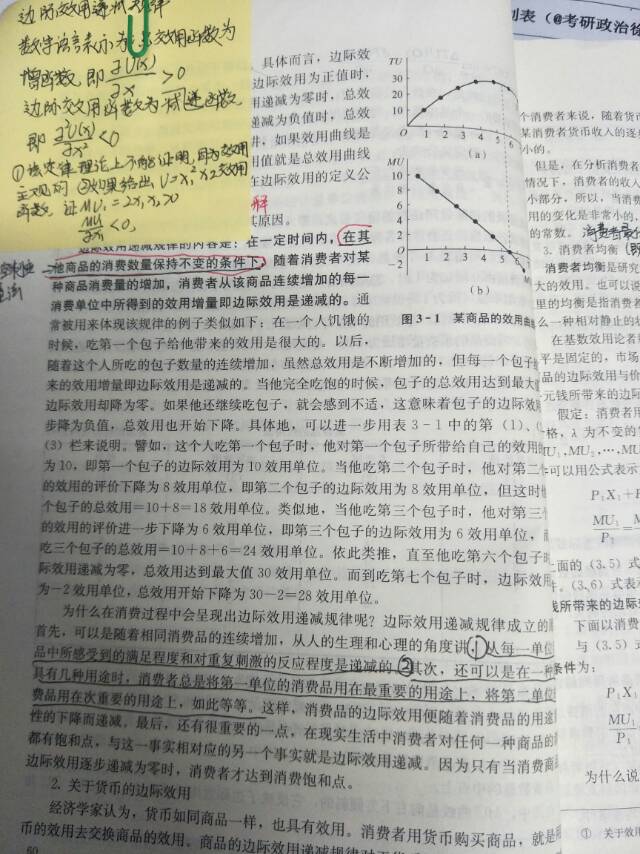 边际效用递减规律
数学语言表示为: 总效用函数为
增函数, 即 ∂U(x)/∂x >0
边际效用函数为减函数
即 ∂²U(x)/∂x² <0
①该定律理论上不能证明,因为效用
主观的 ②如果给出 U=x₁²x₂效用
函数,证MU₁=2x₁x₂>0
<0,
具体而言，边际效
边际效用为正值时，
用递减为零时，总效
递减为负值时，总效
如果效用曲线是
用值就是总效用曲线
在边际效用的定义公
其原因。
边际效用递减规律的内容是：在一定时间内，在其
他商品的消费数量保持不变的条件下，随着消费者对某
种商品消费量的增加，消费者从该商品连续增加的每一
消费单位中所得到的效用增量即边际效用是递减的。通
常被用来体现该规律的例子类似如下：在一个人饥饿的
时候，吃第一个包子给他带来的效用是很大的。以后，
TU
30
20
10
O
1 2 3 4 5 6
(a)
MU
10
8
6
4
2
0
−2
1 2 3 4 5 6
(b)
图 3-1 某商品的效用曲
随着这个人所吃的包子数量的连续增加，虽然总效用是不断增加的，但每一个包子
来的效用增量即边际效用是递减的。当他完全吃饱的时候，包子的总效用达到最大
边际效用却降为零。如果他还继续吃包子，就会感到不适，这意味着包子的边际效
步降为负值，总效用也开始下降。具体地，可以进一步用表 3-1 中的第 (1)、
(3) 栏来说明。譬如，这个人吃第一个包子时，他对第一个包子所带给自己的效用
为 10，即第一个包子的边际效用为 10 效用单位。当他吃第二个包子时，他对第二
的效用的评价下降为 8 效用单位，即第二个包子的边际效用为 8 效用单位，但这时
个包子的总效用＝10＋8＝18 效用单位。类似地，当他吃第三个包子时，他对第三
的效用的评价进一步下降为 6 效用单位，即第三个包子的边际效用为 6 效用单位，
吃三个包子的总效用＝10＋8＋6＝24 效用单位。依此类推，直至他吃第六个包子时
际效用递减为零，总效用达到最大值 30 效用单位。而到吃第七个包子时，边际效用
为−2 效用单位，总效用开始下降为 30−2＝28 效用单位。
为什么在消费过程中会呈现出边际效用递减规律呢？边际效用递减规律成立的
首先，可以是随着相同消费品的连续增加，从人的生理和心理的角度讲，①从每一单位
品中所感受到的满足程度和对重复刺激的反应程度是递减的。②其次，还可以是在一种
具有几种用途时，消费者总是将第一单位的消费品用在最重要的用途上，将第二单位
费品用在次重要的用途上，如此等等。这样，消费品的边际效用便随着消费品的用途
性的下降而递减。最后，还有很重要的一点，在现实生活中消费者对任何一种商品的
都有饱和点，与这一事实相对应的另一个事实就是边际效用递减。因为只有当消费商
边际效用逐步递减为零时，消费者才达到消费饱和点。
2. 关于货币的边际效用
经济学家认为，货币如同商品一样，也具有效用。消费者用货币购买商品，就是
币的效用去交换商品的效用。商品的边际效用递减规律对于货
60
列表（@考研政治徐
个消费者来说，随着货币
某消费者货币收入的逐
小的。
但是，在分析消费者
情况下，消费者的收入
小部分，所以，当消费
用的变化是非常小的，
的常数。
3. 消费者均衡
消费者均衡是研究
大的效用。也可以说
里的均衡是指消费者
么一种相对静止的状
在基数效用论者那
平是固定的，市场
品的边际效用与价
元钱所带来的边际
假定：消费者用
格，λ 为不变的
MU₁,MU₂,…,MU
可以用公式表示
P₁X₁+
MU₁/P₁ =
上面的 (3.5) 式
(3.6) 式表
钱所带来的边际
下面以消费
与 (3.5) 式
条件为：
P₁X₁
MU₁/P₁
为什么说
① 关于效用